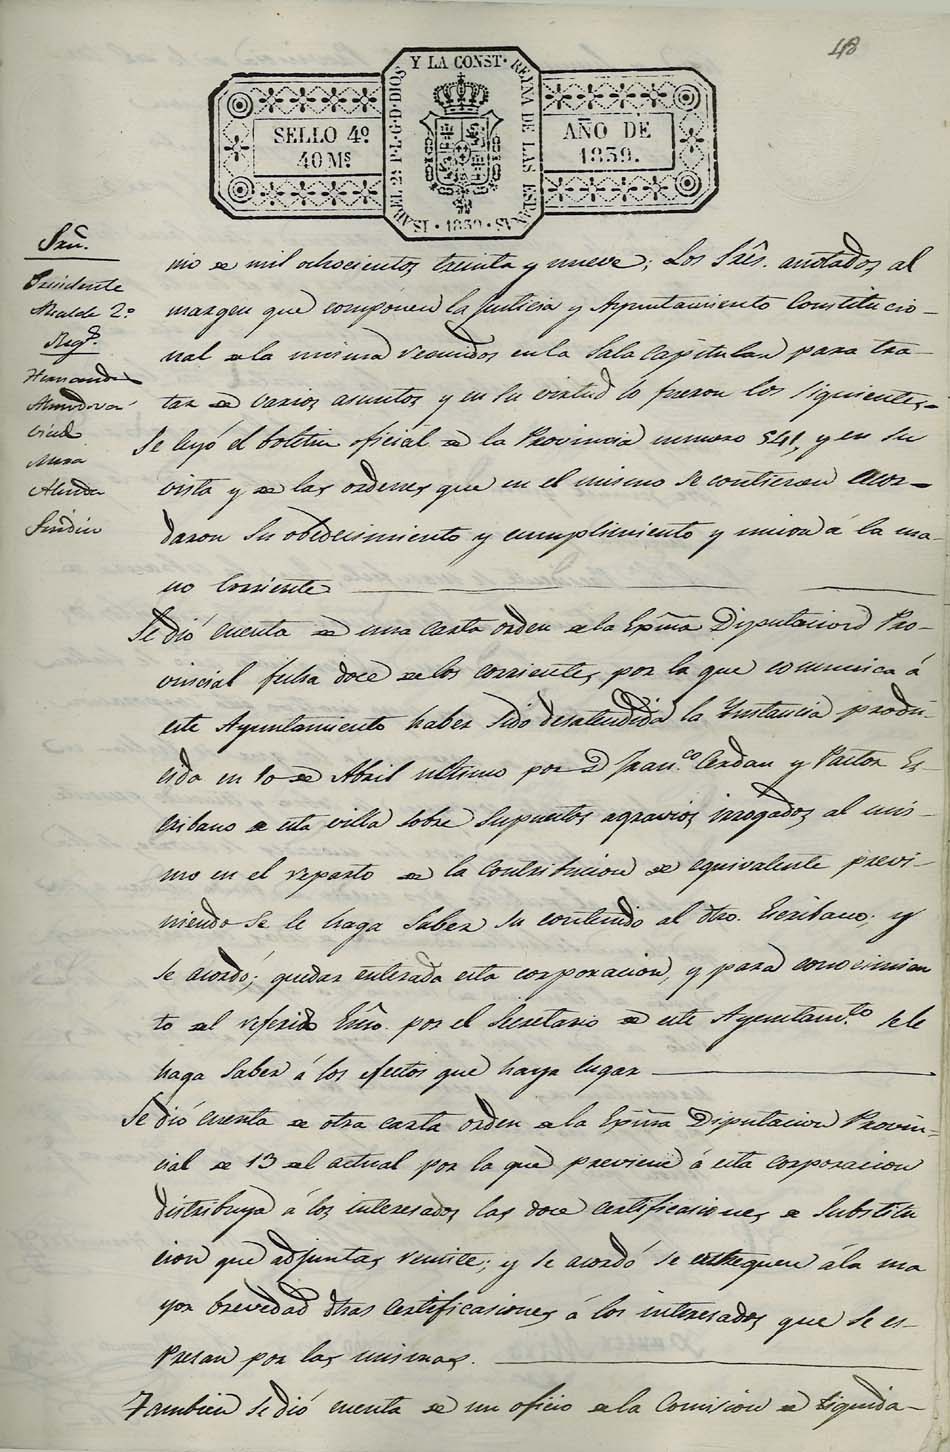 48
ISABEL 2ª P. L. G. D. DIOS Y LA CONST. REYNA DE LAS ESPAÑAS
SELLO 4º
40 Ms
AÑO DE
1839.
· 1839 ·
Sres.
Presidente
Alcalde 2º
Regs.
Hernandez
Almodovar
Mira
Sindico
nio de mil ochocientos treinta y nueve; Los Srês. anotados al
margen que componen la Justicia y Ayuntamiento Constitucio-
nal de la misma reunidos en la Sala Capitular para tra-
tar de varios asuntos y en su virtud lo fueron los siguientes-
Se leyó el boletin oficial de la Provincia numero 541, y en su
vista y de las ordenes que en el mismo se contienen acor-
daron su obedecimiento y cumplimiento y unirá á la ma-
no corriente
Se dió cuenta de una carta orden de la Exma Diputacion Pro-
vincial fecha doce de los corrientes por la que comunica á
este Ayuntamiento haber sido desatendida la Ynstancia produ-
cida en 10 de Abril ultimo por D Fran.co Cerdan y Pastor Es-
cribano de esta villa sobre supuestos agravios irrogados al mis-
mo en el reparto de la Contribucion de equivalente previ-
niendo se le haga saber su contenido al dho. Escribano; y
se acordó; quedar enterada esta corporacion, y para conocimien
to del referido Esno. por el Secretario de este Ayuntam.to se le
haga saber á los efectos que haya lugar
Se dió cuenta de otra carta orden de la Exma Diputacion Provin-
cial de 13 del actual por la que previene á esta corporacion
distribuya á los interesados las doce certificasiones de substitu
cion que adjuntas remite; y se acordó se entreguen á la ma
yor brevedad dhas certificasiones á los interesados que se es-
presan por las mismas.
Tambien se dió cuenta de un oficio de la Comision de liquida-